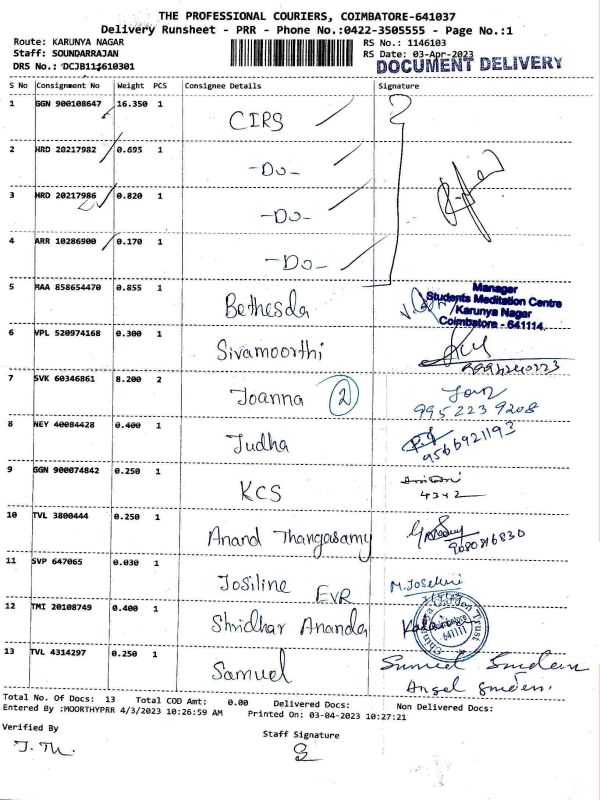 THE PROFESSIONAL COURIERS, COIMBATORE-641037
Delivery Runsheet - PRR - Phone No.:0422-3505555 - Page No.:1
Route: KARUNYA NAGAR RS No.: 1146103
Staff: SOUNDARRAJAN RS Date: 03-Apr-2023
DRS No.: DCJB113610301 DOCUMENT DELIVERY
S No Consignment No Weight PCS Consignee Details Signature
1 GGN 900108647 16.350 1 CIRS
2 HRD 20217982 0.695 1 -Do-
3 HRD 20217986 0.820 1 -Do-
4 ARR 10286900 0.170 1 -Do-
5 MAA 858654470 0.855 1 Bethesda
Manager
Students Meditation Centre
Karunya Nagar
Coimbatore - 641114.
6 VPL 520974168 0.300 1 Sivamoorthi
7 SVK 60346861 8.200 2 Joanna 2
9952239208
8 NEY 40084428 0.400 1 Judha
9566921193
9 GGN 900074842 0.250 1 KCS
4342
10 TVL 3800444 0.250 1 Anand Thangasamy
9080816830
11 SVP 647065 0.030 1 Josiline EVR
12 TMI 20108749 0.400 1 Shridhar Ananda
13 TVL 4314297 0.250 1 Samuel
Total No. Of Docs: 13 Total COD Amt: 0.00 Delivered Docs: Non Delivered Docs:
Entered By :MOORTHYPRR 4/3/2023 10:26:59 AM Printed On: 03-04-2023 10:27:21
Verified By Staff Signature